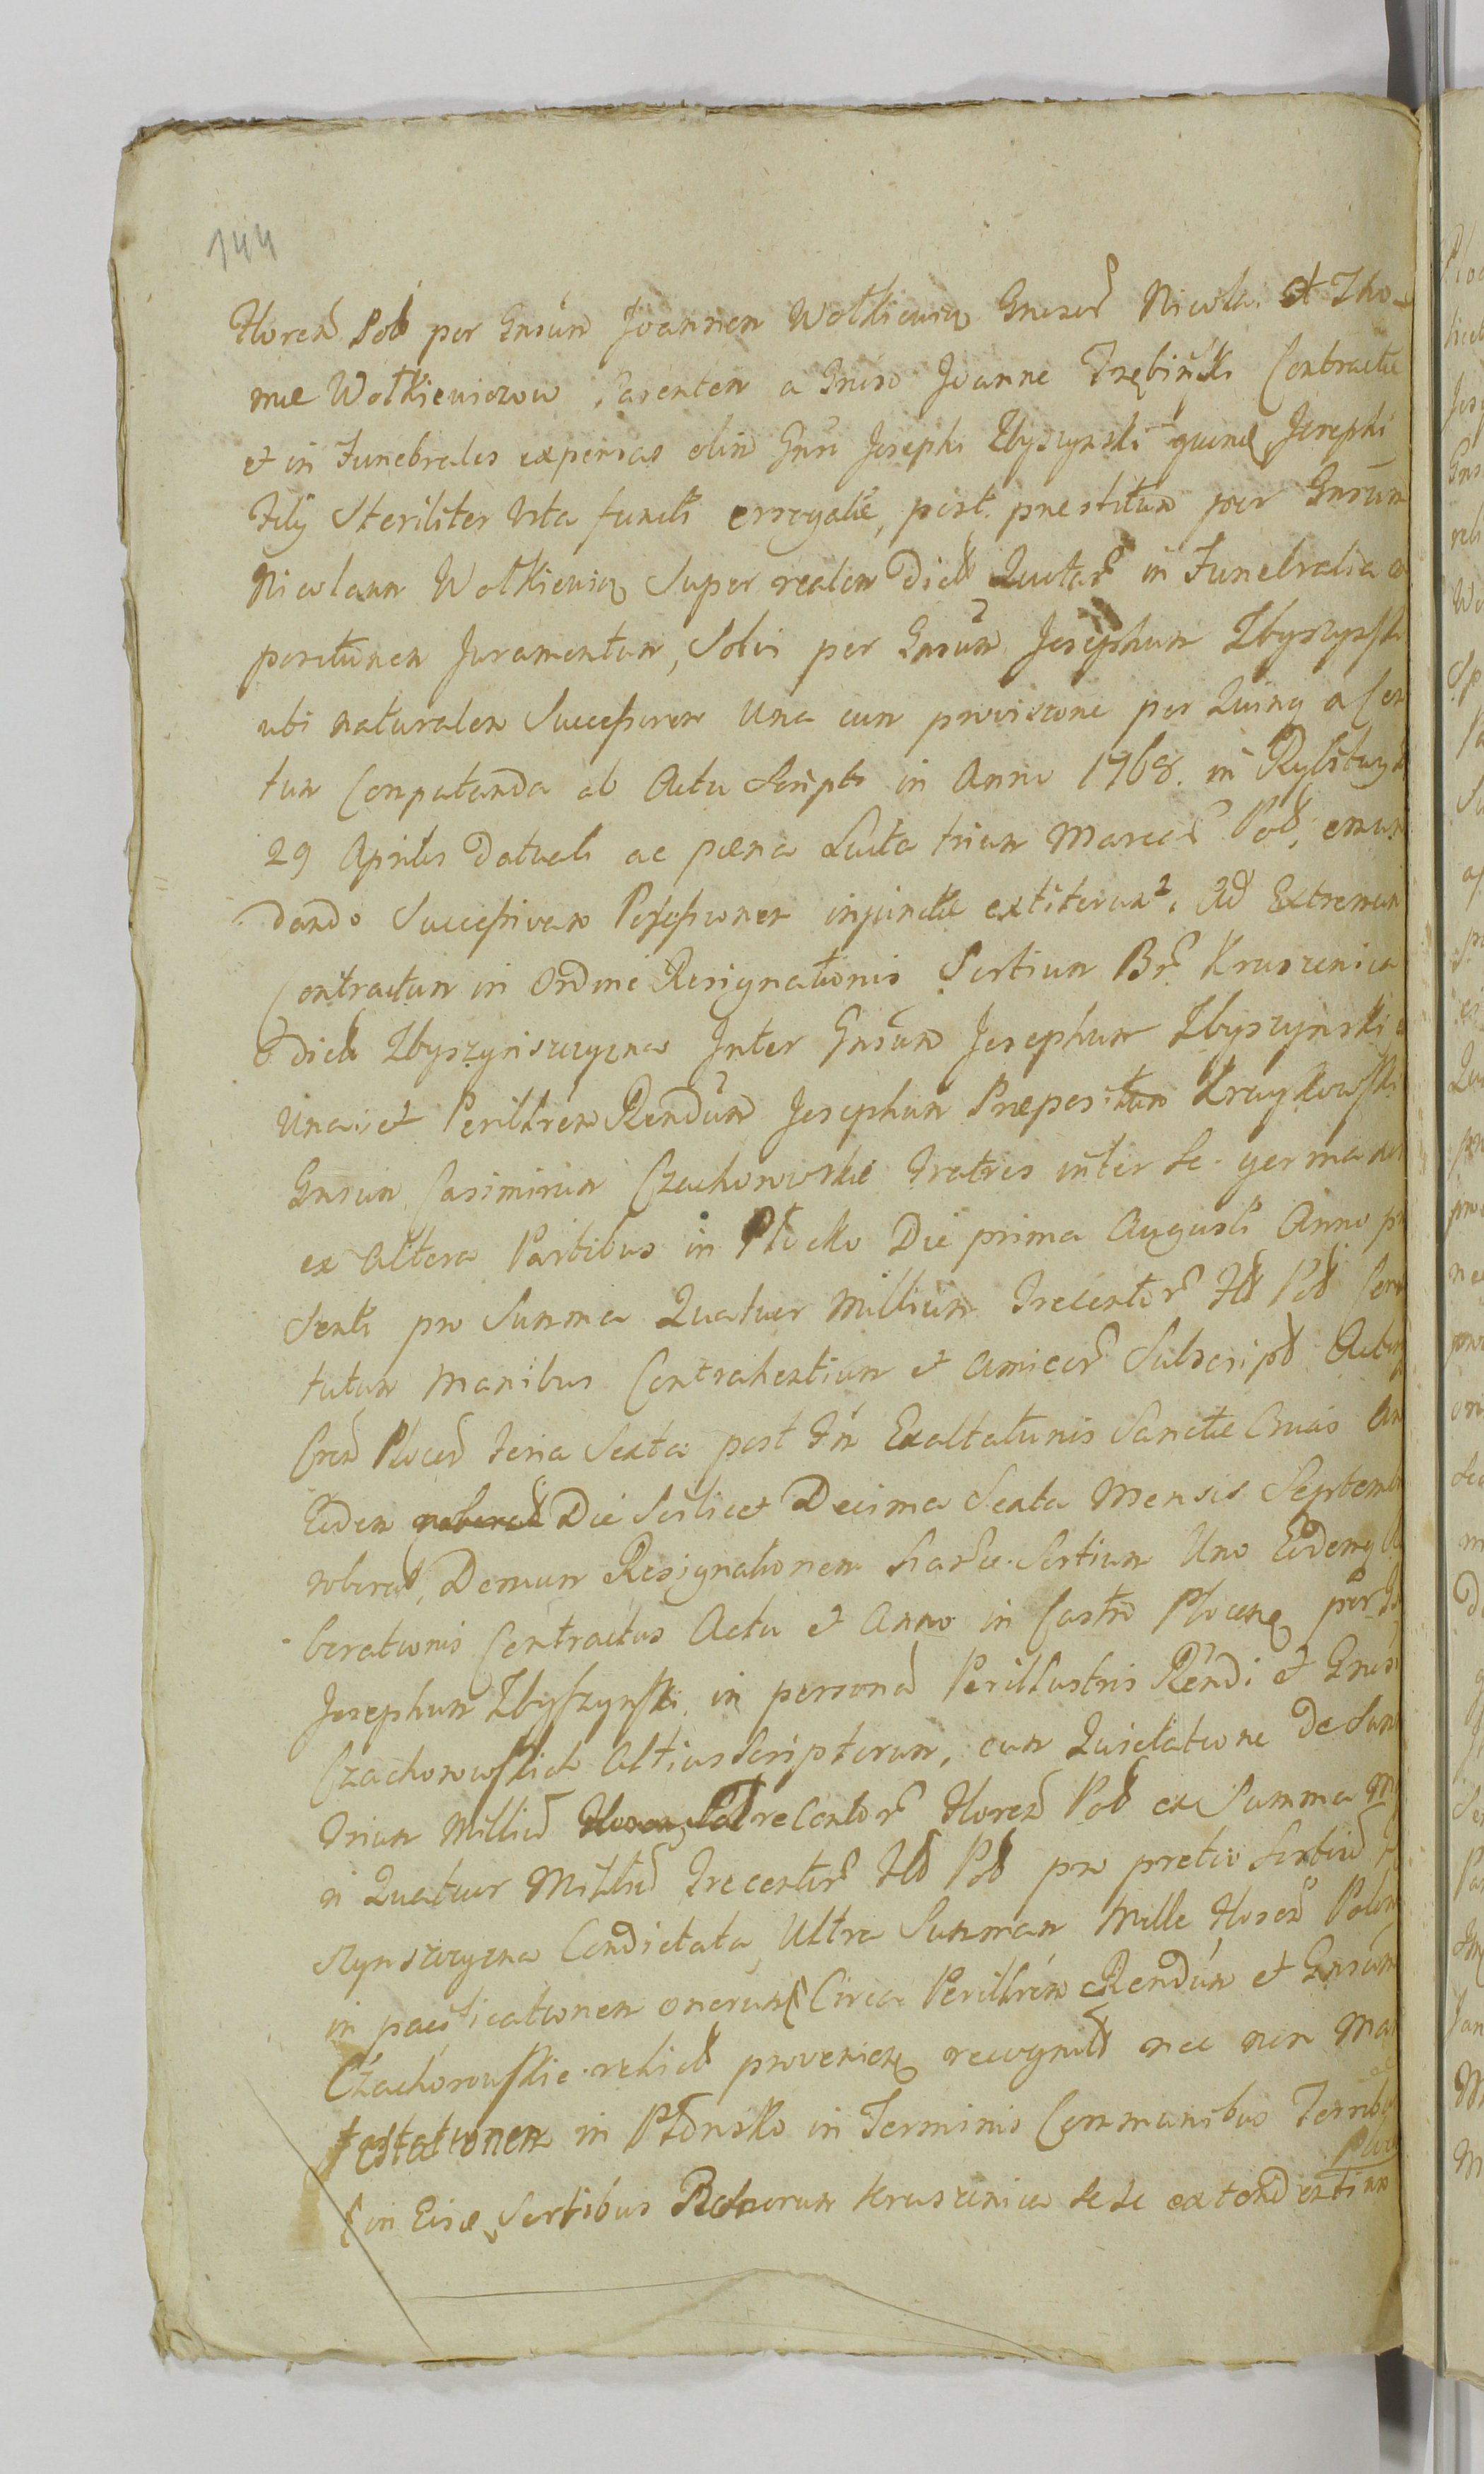 144
Floren Pol per Gnsum Joannem Wołkiewicz Gnosor Nicolai et Tho-
mæ Wołkiewiczow Parentem a Gnoso Joanne Trębiński Contractæ
et in Funebrales expensas olim Gnsi Josephi Zbyszynski Josephi
Filij Steriliter Vita functi errogatæ, post præstitum per Gnsum
Nicolaum Wołkiewicz Super realem dict in Funebralia
positionem Juramentum, Solvi per Gnsum Josephum Zbyszynski
uti naturalem Successorem Una cum provisione per Quinq a Cen
tum Computanda ab Actu Scripti in Anno 1768. in
29 Aprilis datuali ac pæna Luita trium Marcar Pol, emun
dando Successivam Possessionem injunctæ extiterunt. Ad Extremum
Contractum in Ordine Resignationis Sortium Br Kruszenica
dict Zbyszyńszczyzna Inter Gnsum Josephum Zbyszynski
Una, et Perillrem Rendum Josephum Præpositum
Gnsum Casimirum Czachorowskie Fratres inter se germanos
ex Altera Partibus in Płocko Die prima Augusti Anno præ
senti pro Summa Quatuor Millium Trecentor Fld Pol
tutum Manibus Contrahentium et Amicor Subscript
Cren Plocen Feria Sexta post Fm Exaltationis Sanctæ Crucis An
Eodem roborat Die Scilicet Decima Sexta Mensis Septemb
roborat, Demum Resignationem Sortium Uno Eodemq
borationis Contractus Actu et Anno in Castro Plocen per
Josephum Zbyszynski, in personam Perillustris Rendi et Gnosi
Czachorowskich Altius Scriptorum, cum Quietatione de Sum
Trium Millium Floren Pol recentor Floren Pol ex Summa
n Quatuor Millium Trecentor Fld Pol pro pretio Sortium
szynszczyzna Condictata, Ultra Summam Mille Floren Polon
in pacificationem onerum Circa Perillrem Rendum et Gnsum
Czachorowskie relict provenien recognit nec non
festationem in Płońsko in Terminis Communibus
in Eisd Sortibus Bonorum Kruszenica sese extendentium